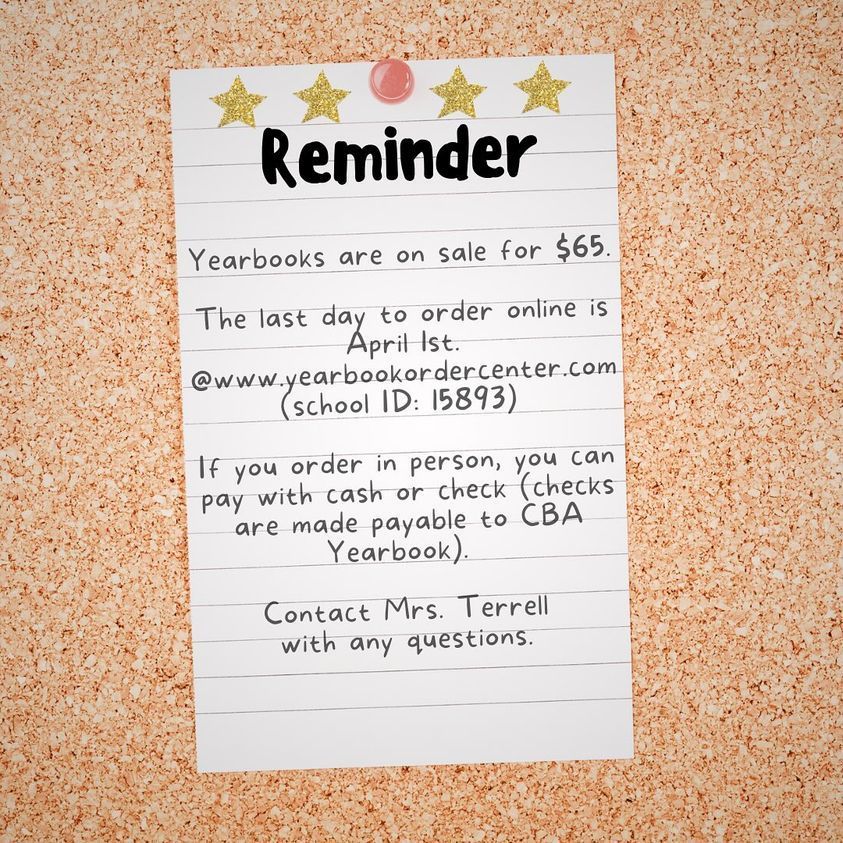 Reminder
Yearbooks are on sale for $65.
The last day to order online is
April 1st.
@www.yearbookordercenter.com
(school ID: 15893)
If you order in person, you can
pay with cash or check (checks
are made payable to CBA
Yearbook).
Contact Mrs. Terrell
with any questions.